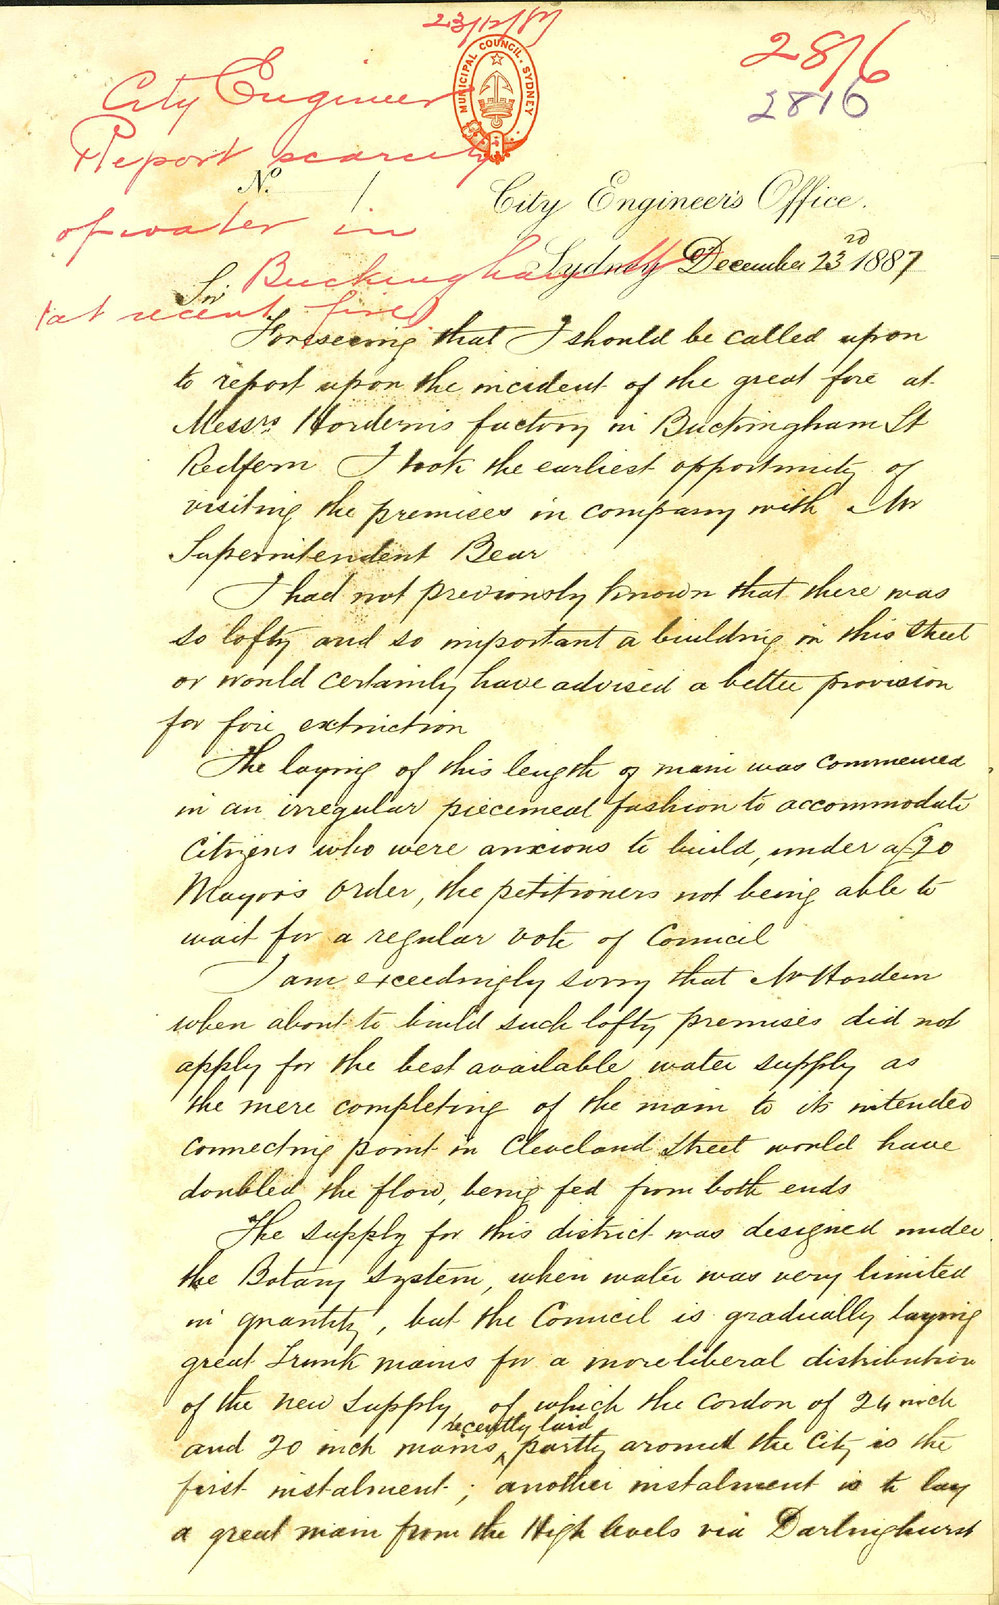 23/12/87
MUNICIPAL COUNCIL. SYDNEY
28/6
2816
City Engineer
Report scarcity
of water in
Buckingham St
at recent fire
No. /
City Engineer's Office.
Sydney December 23rd 1887
Sir
Foreseeing that I should be called upon
to report upon the incident of the great fire at
Messrs Hordern's factory in Buckingham St
Redfern I took the earliest opportunity of
visiting the premises in company with Mr
Superintendent Bear
I had not previously known that there was
so lofty and so important a building in this Street
or would certainly have advised a better provision
for fire extinction
The laying of this length of main was commenced
in an irregular piecemeal fashion to accommodate
Citizens who were anxious to build, under a £20
Mayor's order, the petitioners not being able to
wait for a regular vote of Council
I am exceedingly sorry that Mr Hordern
when about to build such lofty premises did not
apply for the best available water supply as
the mere completing of the main to its intended
connecting point in Cleveland Street would have
doubled the flow, being fed from both ends
The supply for this district was designed under
the Botany System, when water was very limited
in quantity, but the Council is gradually laying
great Trunk mains for a more liberal distribution
of the new supply, of which the cordon of 24 inch
and 20 inch mains, recently laid partly around the City is the
first instalment; another instalment is to lay
a great main from the High levels via Darlinghurst